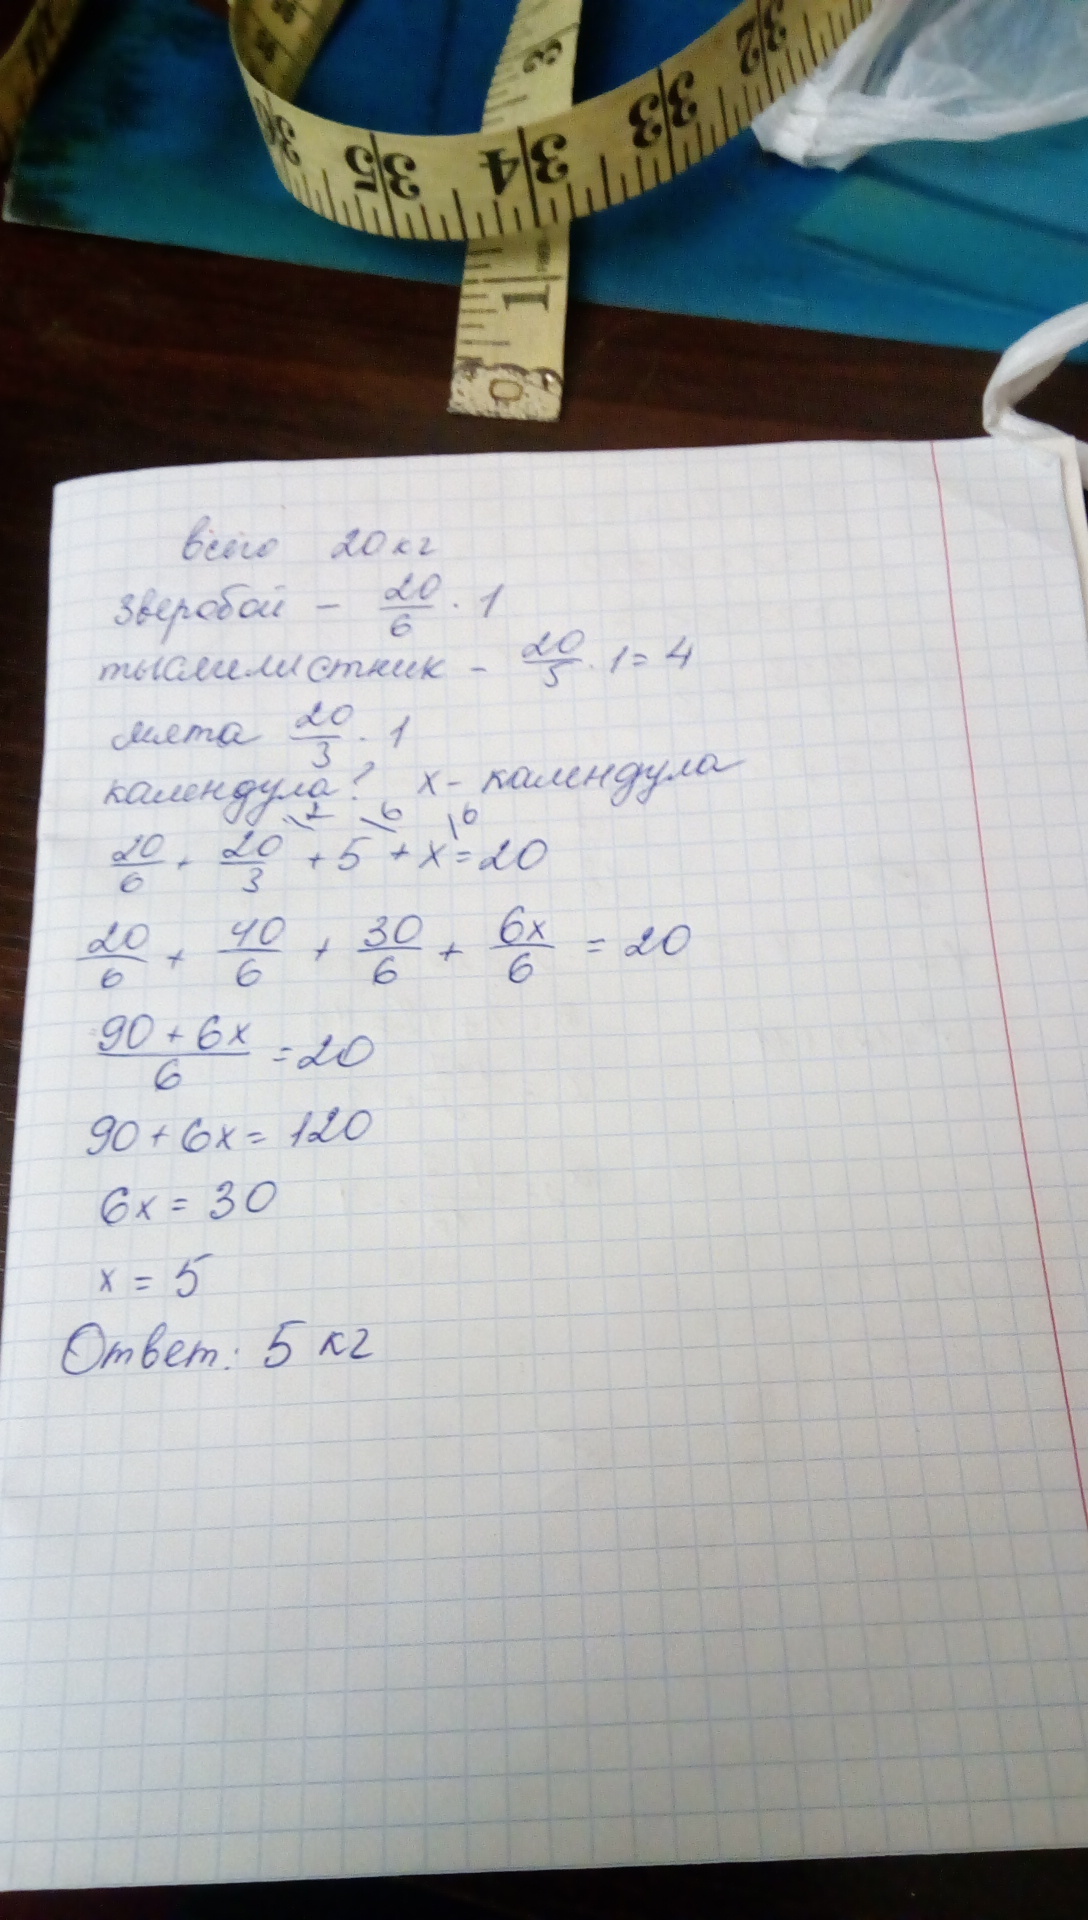 32
33
34
35
36
3
1
всего 20 кг
зверобой - 20/6 · 1
тысмилистник - 20/5 · 1 = 4
мята 20/3 · 1
календула? x - календула
2 6 6
20/6 + 20/3 + 5 + x = 20
20/6 + 40/6 + 30/6 + 6x/6 = 20
90 + 6x/6 = 20
90 + 6x = 120
6x = 30
x = 5
Ответ: 5 кг